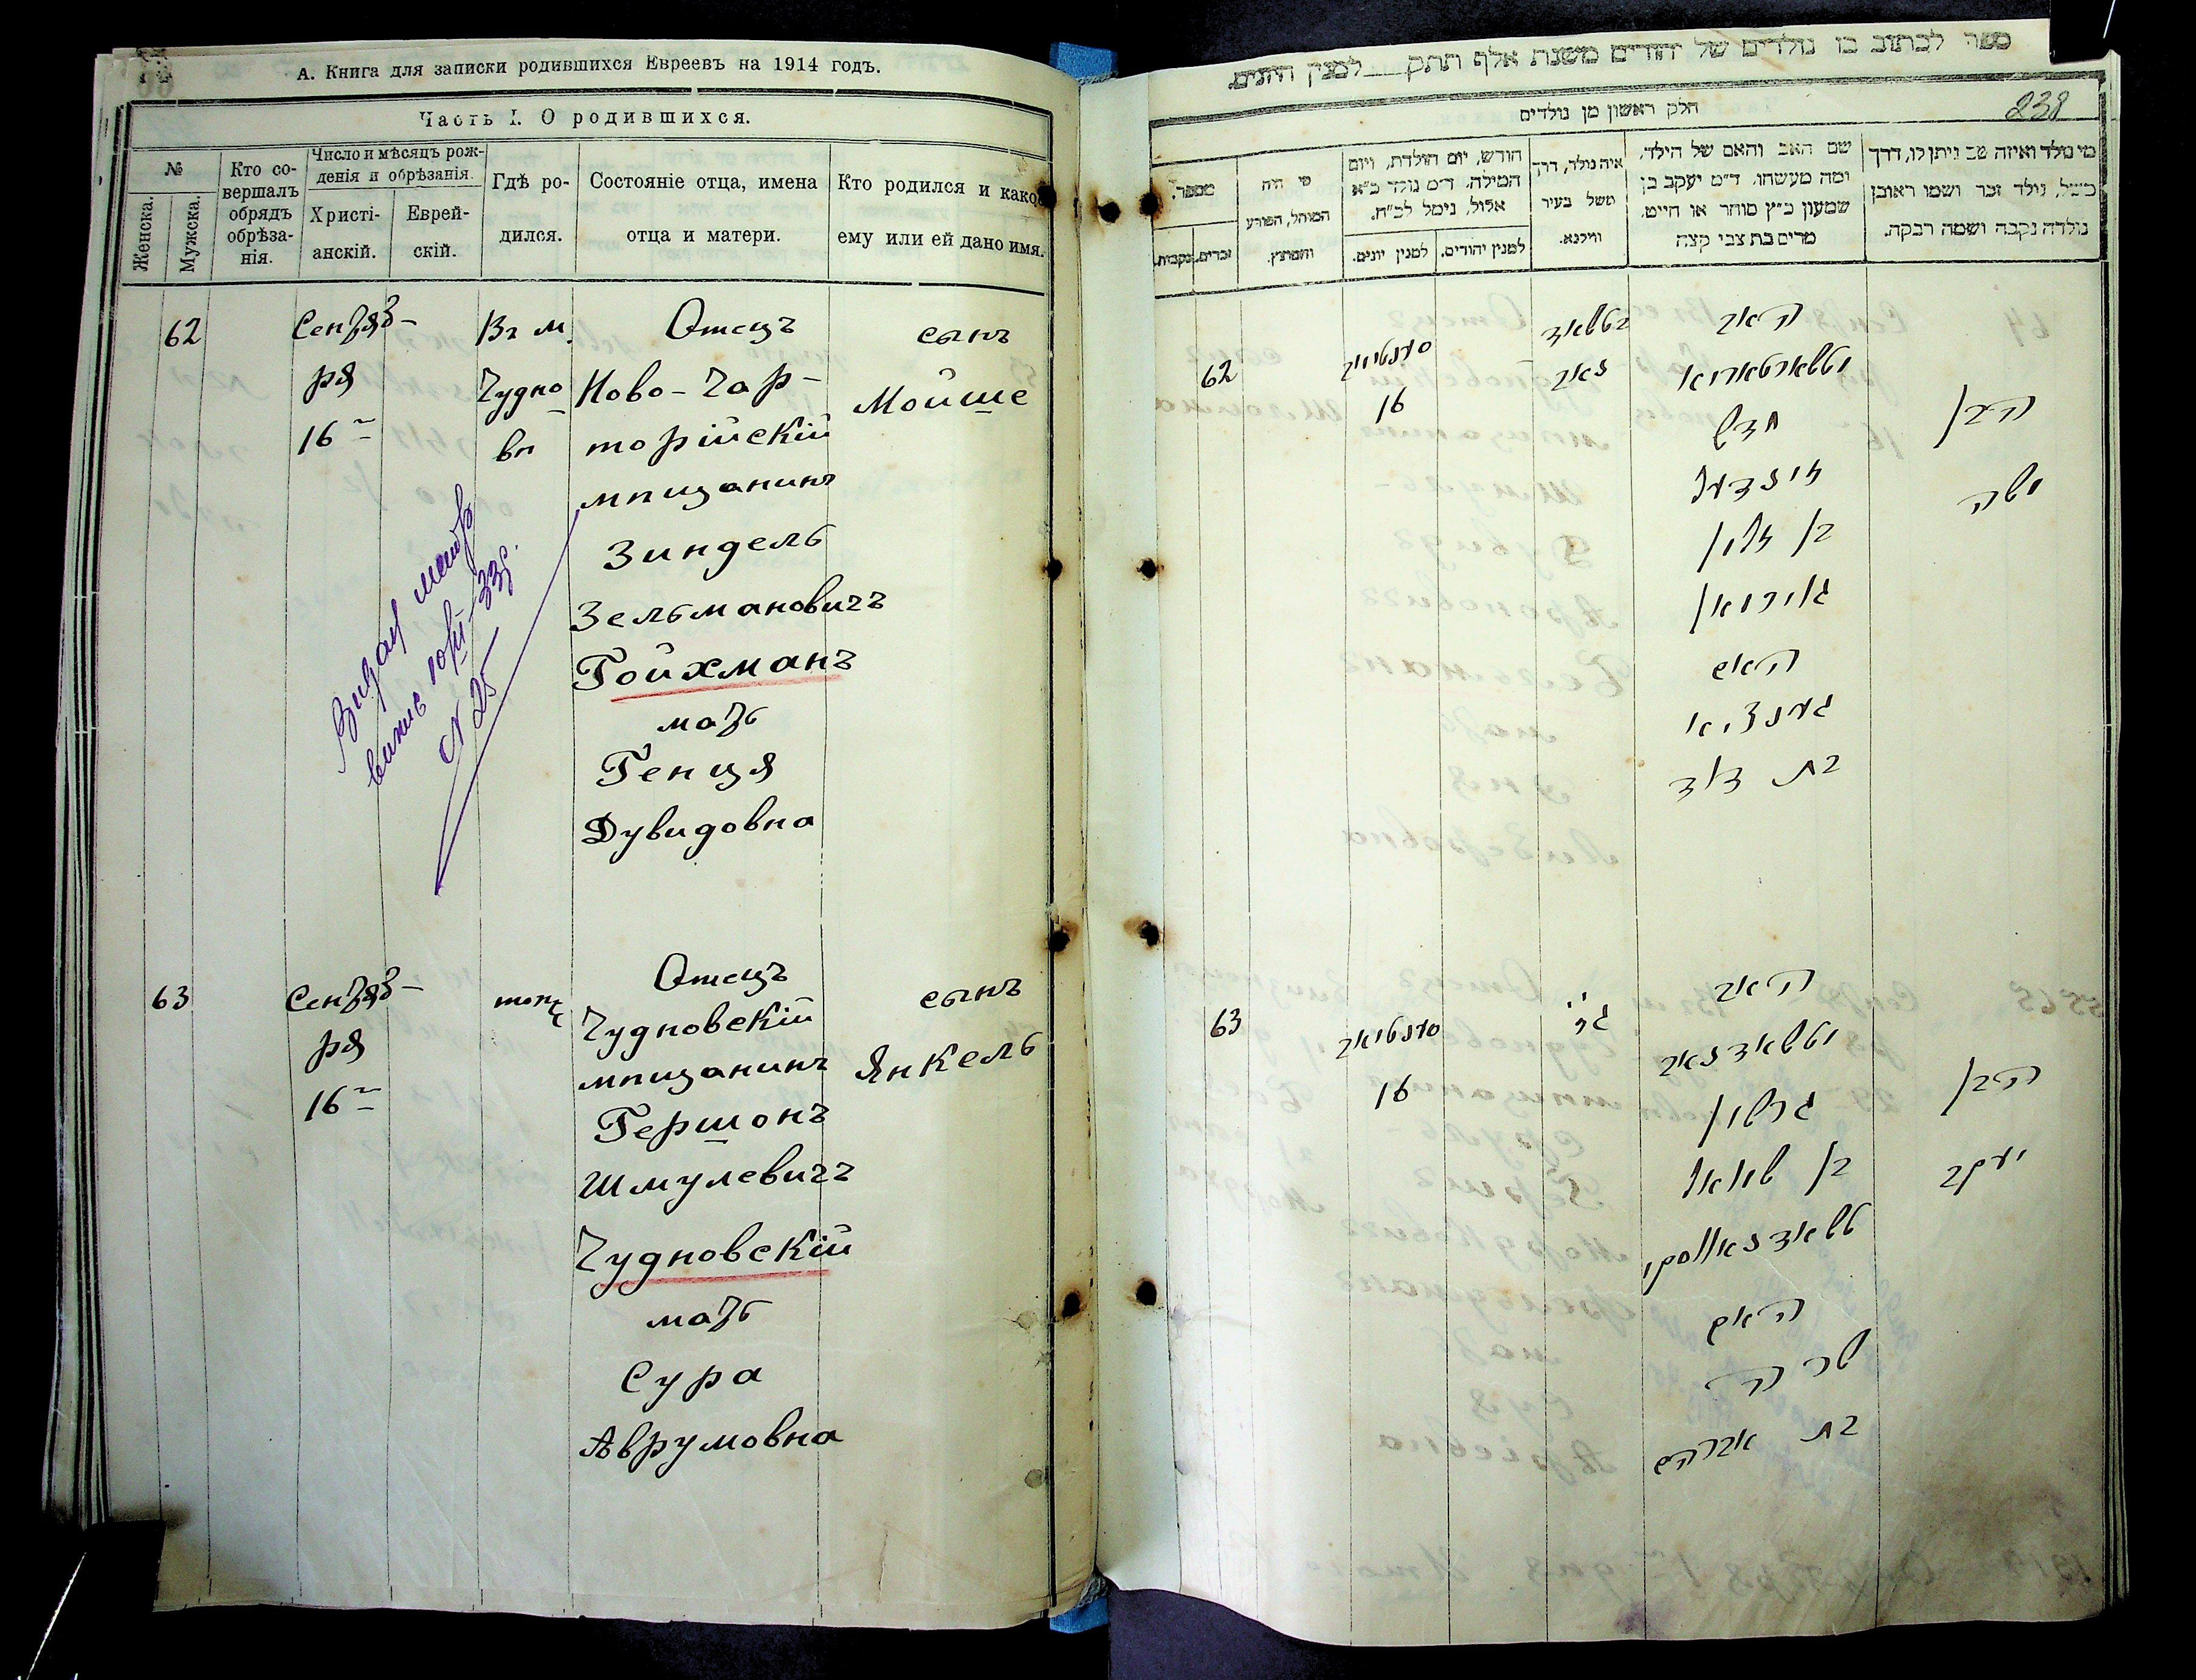 А. Книга для записки родившихся Евреевъ на 1914 годъ.
Часть I. О родившихся.
№
Женска.
Мужска.
Кто со-
вершалъ
обрядъ
обрѣза-
нія.
Число и мѣсяцъ рож-
денія и обрѣзанія.
Христі-
анскій.
Еврей-
скій.
Гдѣ ро-
дился.
Состояніе отца, имена
отца и матери.
Кто родился и какое
ему или ей дано имя.
62
Сентяб-
ря
16
Въ м.
Чудно
вѣ
Отецъ
Ново-Чар-
торійскій
мѣщанинъ
Зиндель
Зельмановичъ
Гойхманъ
мать
Генця
Дувидовна
сынъ
Мойше
N 25
63
Сентяб-
ря
16
тоже
Отецъ
Чудновскій
мѣщанинъ
Гершонъ
Шмулевичъ
Чудновскій
мать
Сура
Аврумовна
сынъ
Янкель
ספר לכתוב בו נולדים של יהודים משנת אלף תתק למנין היונים.
238
חלק ראשון מן נולדים
מי נולד ואיזה שם ניתן לו, דרך
משל, נולד זכר ושמו ראובן
נולדה נקבה ושמה רבקה.
שם האב והאם של הילד,
ומה מעשהו. ד״מ יעקב בן
שמעון כ״ץ סוחר או חייט,
מרים בת צבי קצה
איה נולד, דרך
משל בעיר
ווילנא.
חודש, יום הולדת, ויום
המילה. ד״מ נולד כ״א
אלול, נימל לכ״ח.
למנין יהודים.
למנין יונים.
מי היה
המוהל, הפורע
והמוצץ.
מספר.
זכרים.
נקבות.
62
16
האב
זינדעל
בן זלמן
גויכמאן
האם
גענציא
בת דוד
הבן
משה
63
סענטיאב
16
האב
גרשון
בן שמואל
טשאדנאווסקי
האם
שרה
בת אברהם
הבן
יעקב